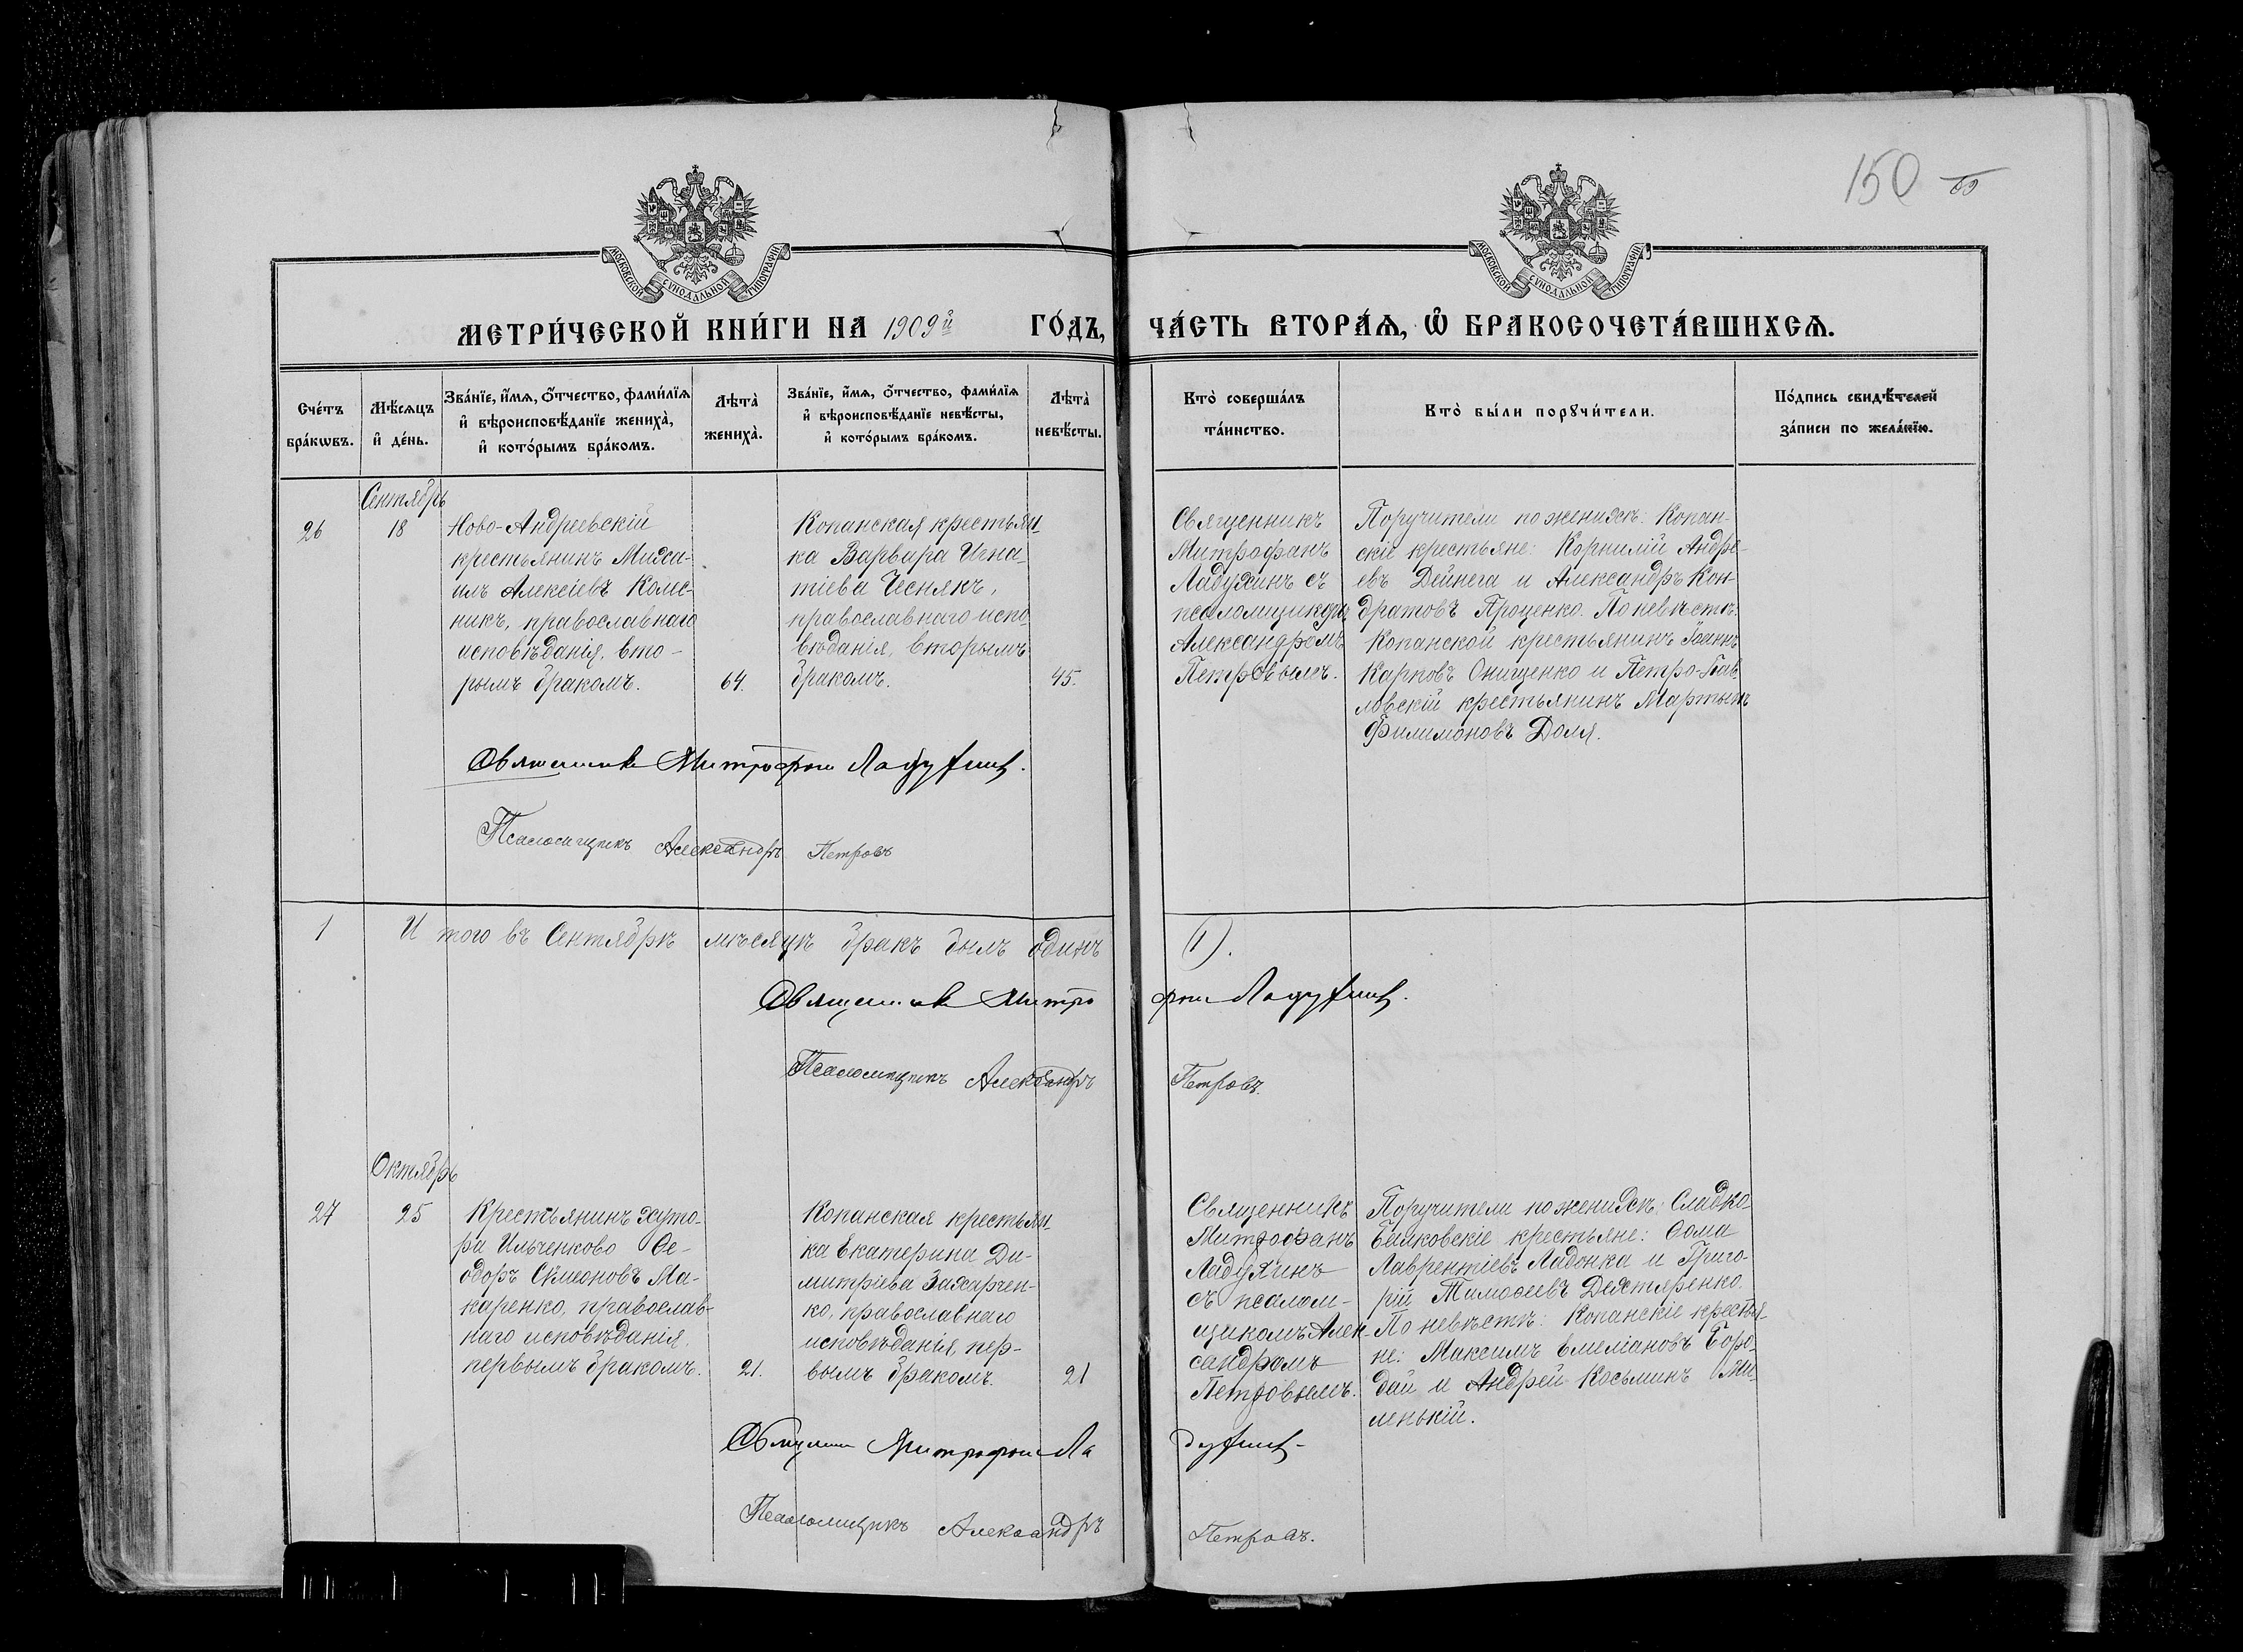 150
МОСКОВСКОЙ СУНОДАЛЬНОЙ ТИПОГРАФІИ
МОСКОВСКОЙ СУНОДАЛЬНОЙ ТИПОГРАФІИ
МЕТРИ́ЧЕСКОЙ КНИ́ГИ НА 1909й ГО́ДЪ, ЧА́СТЬ ВТОРА́Ѧ, Ѽ БРАКОСОЧЕТА́ВШИХСѦ.
Сче́тъ бра́кѡвъ.
Мѣ́сяцъ и҆ де́нь.
Зва́нїе, и҆́мѧ, ѻ҆́тчество, фами́лїѧ
и҆ вѣроисповѣ́данїе жениха̀,
и҆ кото́рымъ бра́комъ.
Лѣта̀ жениха̀.
Зва́нїе, и҆́мѧ, ѻ҆́тчество, фами́лїѧ
и҆ вѣроисповѣ́данїе невѣ́сты,
и҆ кото́рымъ бра́комъ.
Лѣта̀ невѣ́сты.
Кто̀ соверша́лъ
та́инство.
Кто̀ бы́ли порꙋчи́тели.
По́дпись свидѣ́телей
за́писи по жела́нїю.
Сентябрь
26
18
Ново-Андреевскій
крестьянинъ Миха-
илъ Алексіевъ Колес-
никъ, православнаго
исповѣданія, вто-
рымъ бракомъ.
64.
Копанская крестьян-
ка Варвара Игна-
тіева Чеснякъ,
православнаго испо
вѣданія, вторымъ
бракомъ.
45.
Священникъ
Митрофанъ
Ладухинъ съ
псаломщикомъ
Александромъ
Петровымъ.
Поручители по женихѣ: Копан-
скіе крестьяне: Корнилій Андре-
евъ Дейнега и Александръ Кон-
дратовъ Проценко. По невѣстѣ:
Копанской крестьянинъ Іоаннъ
Карповъ Онищенко и Петро-Пав
ловскій крестьянинъ Мартынъ
Филимоновъ Доля.
Священникъ Митрофанъ Ладухинъ.
Псаломщикъ Александръ Петровъ
1
И того въ Сентябрѣ мѣсяцѣ бракъ былъ одинъ (1).
Священникъ Митрофанъ Ладухинъ.
Псаломщикъ Александръ Петровъ.
Октябрь
27
25
Крестьянинъ хуто-
ра Ильченково Ѳе-
одоръ Сѵмеоновъ Ма-
каренко, православ-
наго исповѣданія,
первымъ бракомъ.
21.
Копанская крестьян-
ка Екатерина Ди-
митріева Захарчен-
ко, православнаго
исповѣданія, пер-
вымъ бракомъ.
21
Священникъ
Митрофанъ
Ладухинъ
съ псалом-
щикомъ Алек-
сандромъ
Петровымъ.
Поручители по женихѣ: Сладко-
Балковскіе крестьяне: Ѳома
Лаврентіевъ Ладонка и Григо-
рій Тимоѳеевъ Дехтяренко.
По невѣстѣ: Копанскіе крестья-
не: Максимъ Емеліановъ Боро-
дай и Андрей Косьминъ Ми-
ленькій.
Священникъ Митрофанъ Ладухинъ
Псаломщикъ Александръ Петровъ.